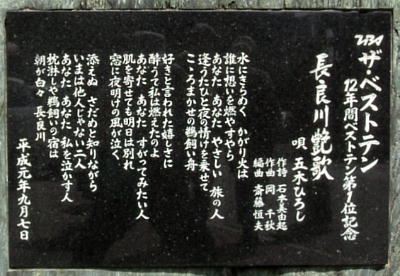 ザベストテン
12年間ベストテン第1位記念
長良川艶歌
唄 五木ひろし
作詩 石本美由起
作曲 岡 千秋
編曲 斎藤恒夫
水にきらめく かがり火は
誰に想いを燃やすやら
あなた あなた やさしい 旅の人
逢うたひと夜の情けを乗せて
こころまかせの鵜飼い舟
好きと言われた嬉しさに
酔うて私は燃えたのよ
あなた あなた すがってみたい人
肌を寄せても明日は別れ
窓に夜明けの風が泣く
添えぬ さだめと知りながら
いまは他人じゃない二人
あなた あなた 私を泣かす人
枕淋しや鵜飼いの宿は
朝が白々 長良川
平成元年九月七日